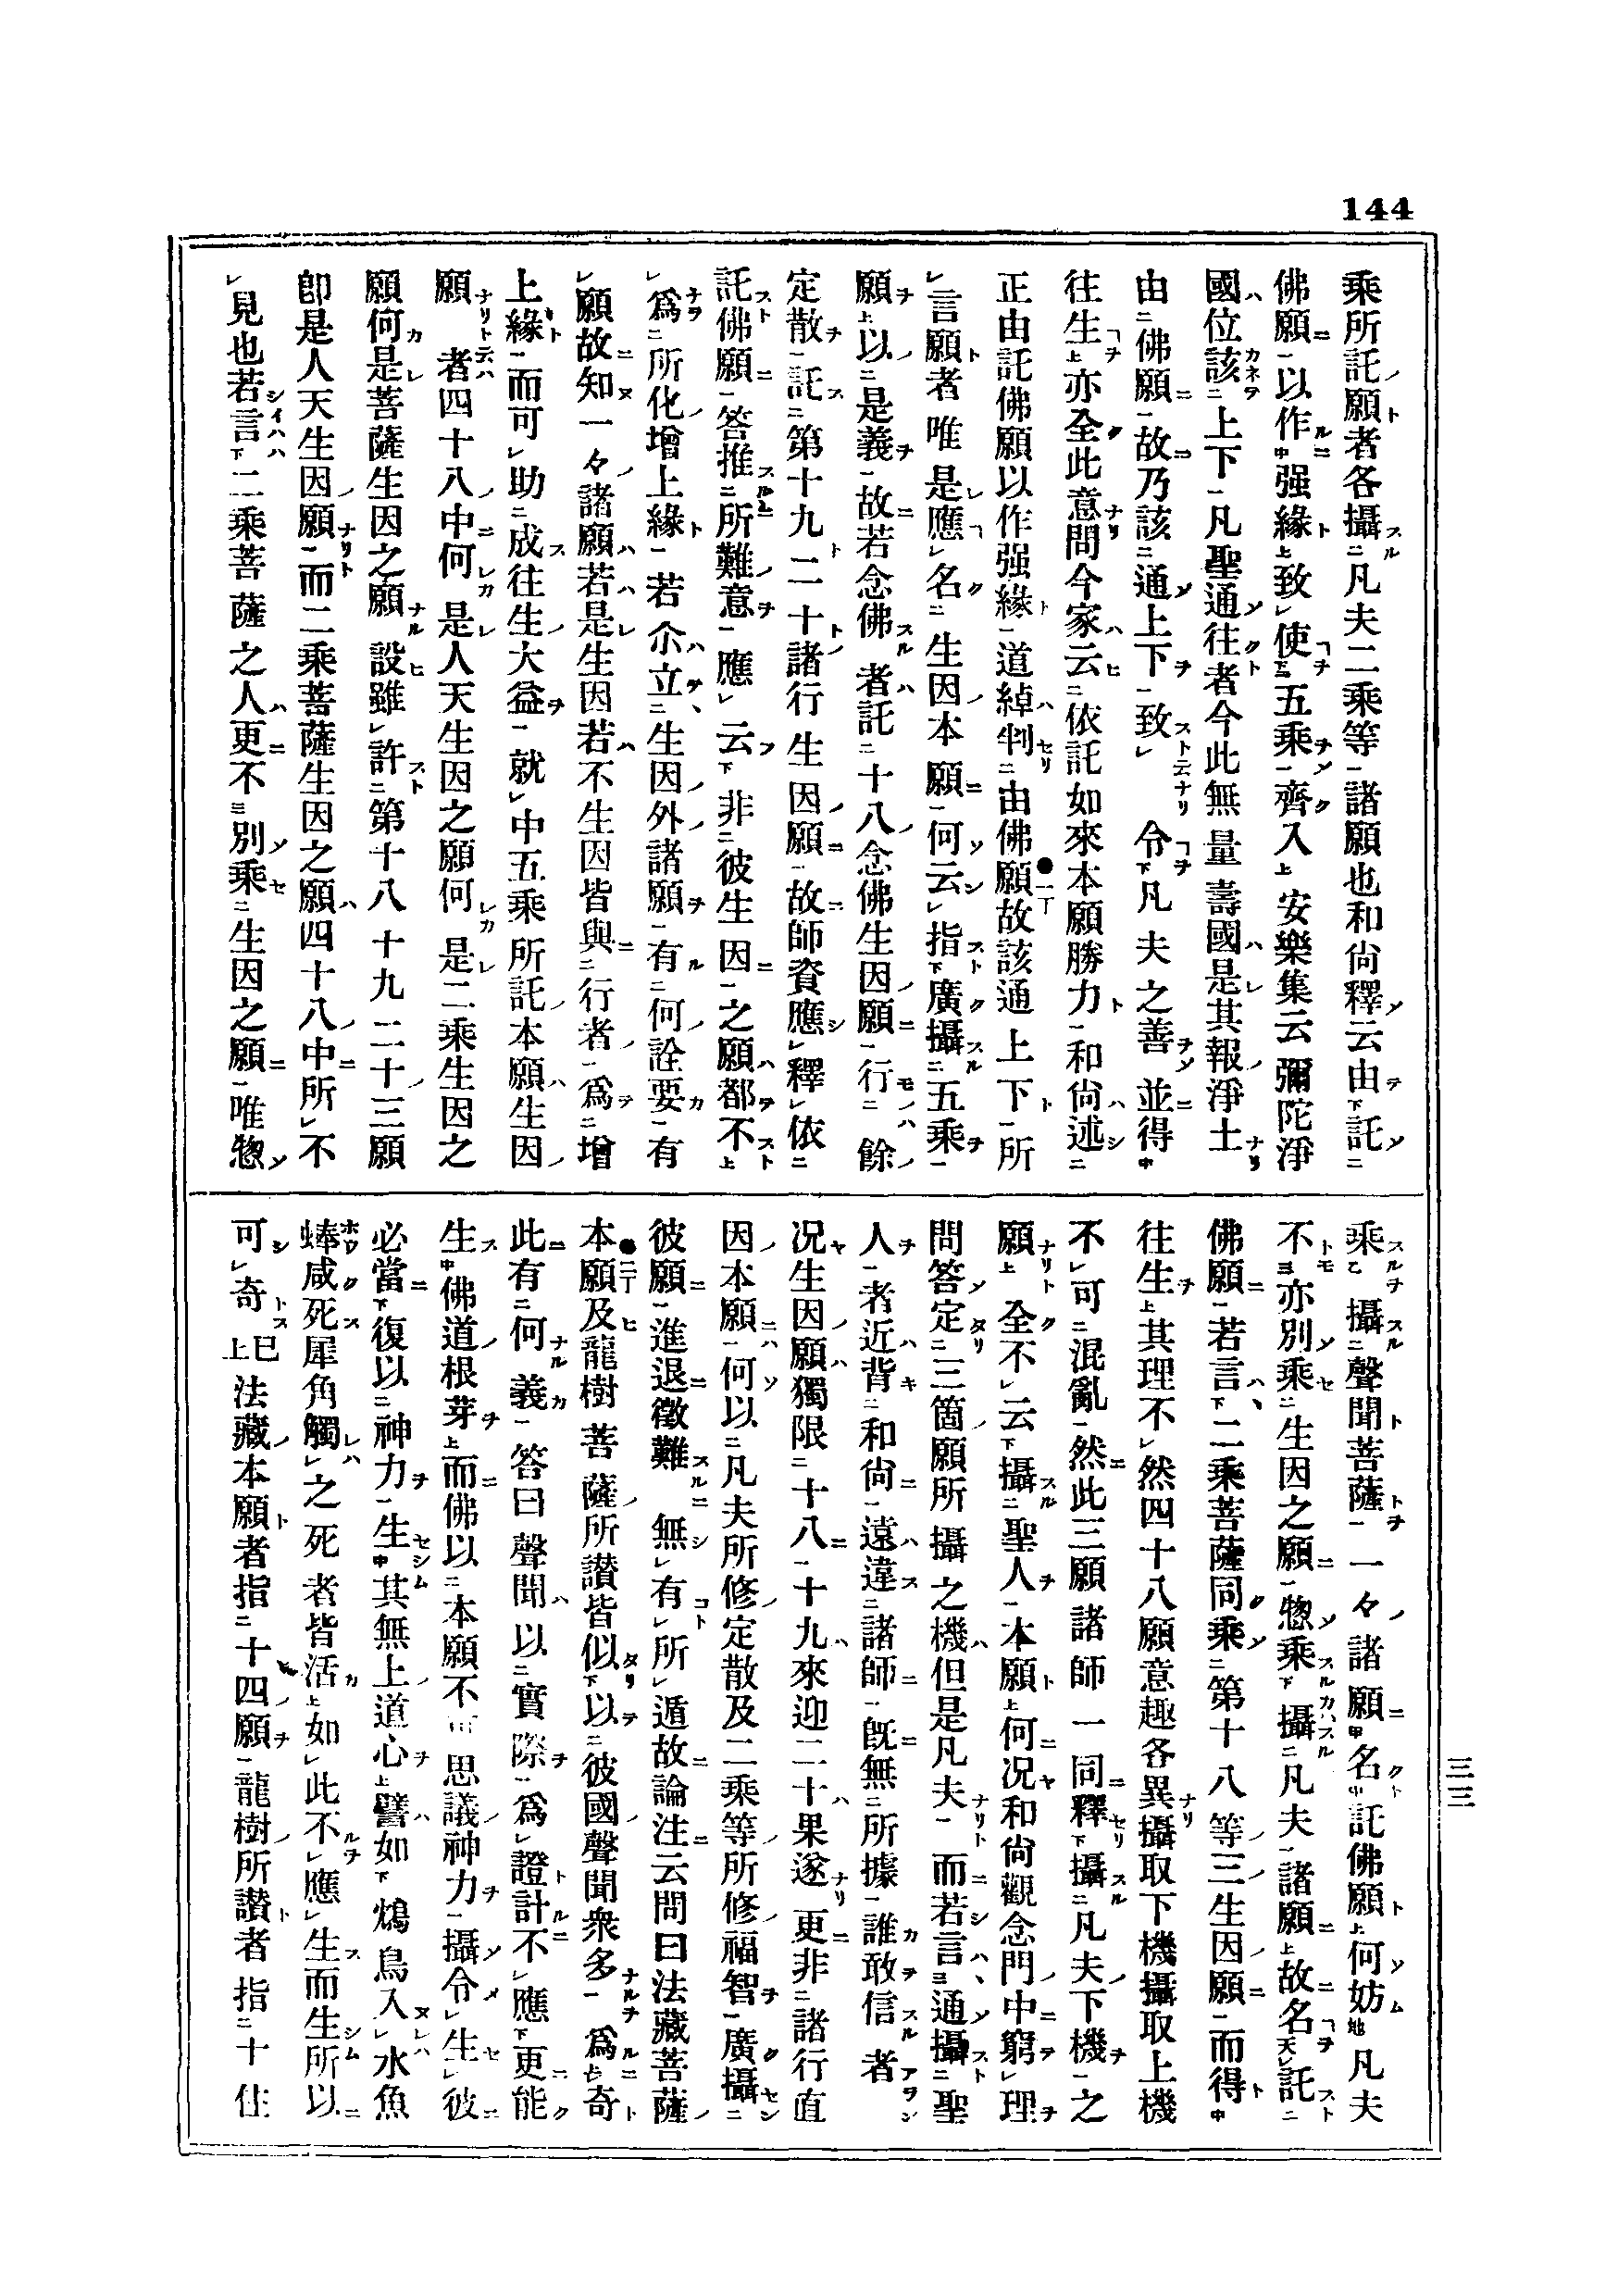 144
乘所託願者各攝凡夫二乘等諸願也和尙釋云由託
佛願以作强緣致使五乘齊入安樂集云彌陀淨
國位該上下凡聖通往者今此無量壽國是其報淨土
由佛願故乃該通上下致令凡夫之善並得
往生亦全此意問今家云依託如來本願勝力和尙述
正由託佛願以作强緣道綽判由佛願故該通上下所
言願者唯是應名生因本願何云指廣攝五乘
願以是義故若念佛者託十八念佛生因願行餘
定散託第十九二十諸行生因願故師資應釋依
託佛願答推所難意應云非彼生因之願都不
爲所化增上緣若尒立生因外諸願有何詮要有
願故知一々諸願若是生因若不生因皆與行者爲增
上緣而可助成往生大益就中五乘所託本願生因
願者四十八中何是人天生因之願何是二乘生因之
願何是菩薩生因之願設雖許第十八十九二十三願
卽是人天生因願而二乘菩薩生因之願四十八中所不
見也若言二乘菩薩之人更不別乘生因之願唯惣
乘攝聲聞菩薩一々諸願名託佛願何妨凡夫
不亦別乘生因之願惣乘攝凡夫諸願故名託
佛願若言二乘菩薩同乘第十八等三生因願而得
往生其理不然四十八願意趣各異攝取下機攝取上機
不可混亂然此三願諸師一同釋攝凡夫下機之
願全不云攝聖人本願何况和尙觀念門中窮理
問答定三箇願所攝之機但是凡夫而若言通攝聖
人者近背和尙遠違諸師旣無所據誰敢信者
况生因願獨限十八十九來迎二十果遂更非諸行直
因本願何以凡夫所修定散及二乘等所修福智廣攝
彼願進退徵難無有所遁故論注云問曰法藏菩薩
本願及龍樹菩薩所讚皆似以彼國聲聞衆多爲奇
此有何義答曰聲聞以實際爲證計不應更能
生佛道根芽而佛以本願不可思議神力攝令生彼
必當復以神力生其無上道心譬如鴆鳥入水魚
蜯咸死犀角觸之死者皆活如此不應生而生所以
可奇已上法藏本願者指十四願龍樹所讚者指十住
三三